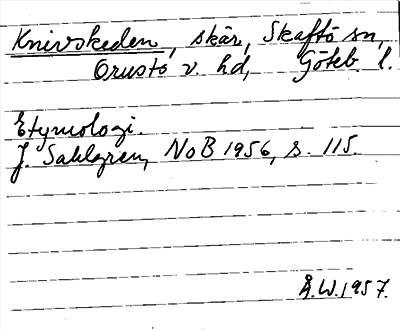 Knivskeden, skär, Skaftö sn,
Orusts v. hd, Göteb. l.
Etymologi.
J. Sahlgren, NoB 1956, s. 115.
Å.W. 1957.